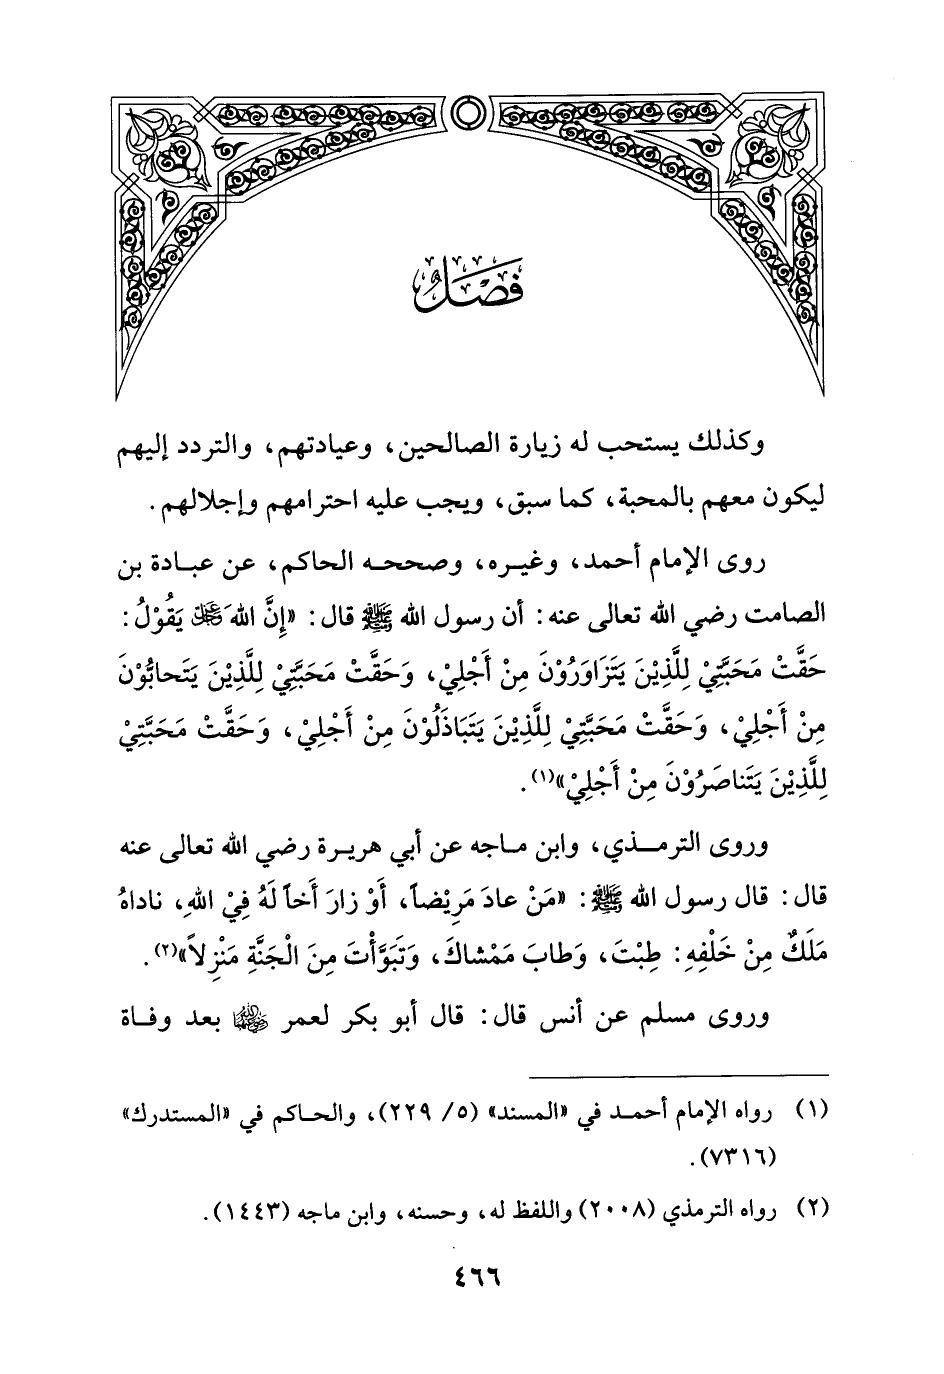 فَصْلٌ
وكذلك يستحب له زيارة الصالحين، وعيادتهم، والتردد إليهم
ليكون معهم بالمحبة، كما سبق، ويجب عليه احترامهم وإجلالهم.
روى الإمام أحمد، وغيره، وصححه الحاكم، عن عبادة بن
الصامت رضي الله تعالى عنه: أن رسول الله ﷺ قال: «إِنَّ اللهَ عَزَّ وَجَلَّ يَقُوْلُ:
حَقَّتْ مَحَبَّتِيْ لِلَّذِيْنَ يَتَزَاوَرُوْنَ مِنْ أَجْلِيْ، وَحَقَّتْ مَحَبَّتِيْ لِلَّذِيْنَ يَتَحابُّوْنَ
مِنْ أَجْلِيْ، وَحَقَّتْ مَحَبَّتِيْ لِلَّذِيْنَ يَتَبَاذَلُوْنَ مِنْ أَجْلِيْ، وَحَقَّتْ مَحَبَّتِيْ
لِلَّذِيْنَ يَتَناصَرُوْنَ مِنْ أَجْلِيْ»(١).
وروى الترمذي، وابن ماجه عن أبي هريرة رضي الله تعالى عنه
قال: قال رسول الله ﷺ: «مَنْ عادَ مَرِيْضاً، أَوْ زارَ أَخاً لَهُ فِيْ اللهِ، ناداهُ
مَلَكٌ مِنْ خَلْفِهِ: طِبْتَ، وَطابَ مَمْشاكَ، وَتَبَوَّأْتَ مِنَ الْجَنَّةِ مَنْزِلاً»(٢).
وروى مسلم عن أنس قال: قال أبو بكر لعمر رضي الله عنهما بعد وفاة
(١) رواه الإمام أحمد في «المسند» (٥/ ٢٢٩)، والحاكم في «المستدرك»
(٧٣١٦).
(٢) رواه الترمذي (٢٠٠٨) واللفظ له، وحسنه، وابن ماجه (١٤٤٣).
٤٦٦